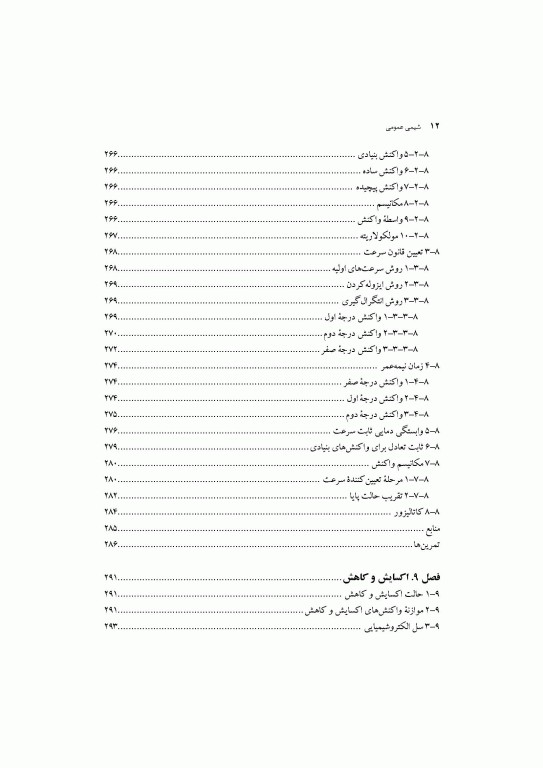 ۱۲ شیمی عمومی
۸-۲-۵ واکنش بنیادی ........ ۲۶۶
۸-۲-۶ واکنش ساده ........ ۲۶۶
۸-۲-۷ واکنش پیچیده ........ ۲۶۶
۸-۲-۸ مکانیسم ........ ۲۶۶
۸-۲-۹ واسطۀ واکنش ........ ۲۶۶
۸-۲-۱۰ مولکولاریته ........ ۲۶۷
۸-۳ تعیین قانون سرعت ........ ۲۶۸
۸-۳-۱ روش سرعت‌های اولیه ........ ۲۶۸
۸-۳-۲ روش ایزوله‌کردن ........ ۲۶۹
۸-۳-۳ روش انتگرال‌گیری ........ ۲۶۹
۸-۳-۳-۱ واکنش درجۀ اول ........ ۲۶۹
۸-۳-۳-۲ واکنش درجۀ دوم ........ ۲۷۰
۸-۳-۳-۳ واکنش درجۀ صفر ........ ۲۷۲
۸-۴ زمان نیمه‌عمر ........ ۲۷۴
۸-۴-۱ واکنش درجۀ صفر ........ ۲۷۴
۸-۴-۲ واکنش درجۀ اول ........ ۲۷۴
۸-۴-۳ واکنش درجۀ دوم ........ ۲۷۵
۸-۵ وابستگی دمایی ثابت سرعت ........ ۲۷۶
۸-۶ ثابت تعادل برای واکنش‌های بنیادی ........ ۲۷۹
۸-۷ مکانیسم واکنش ........ ۲۸۰
۸-۷-۱ مرحلۀ تعیین‌کنندۀ سرعت ........ ۲۸۰
۸-۷-۲ تقریب حالت پایا ........ ۲۸۲
۸-۸ کاتالیزور ........ ۲۸۴
منابع ........ ۲۸۵
تمرین‌ها ........ ۲۸۶
فصل ۹. اکسایش و کاهش ........ ۲۹۱
۹-۱ حالت اکسایش و کاهش ........ ۲۹۱
۹-۲ موازنۀ واکنش‌های اکسایش و کاهش ........ ۲۹۱
۹-۳ سل الکتروشیمیایی ........ ۲۹۳